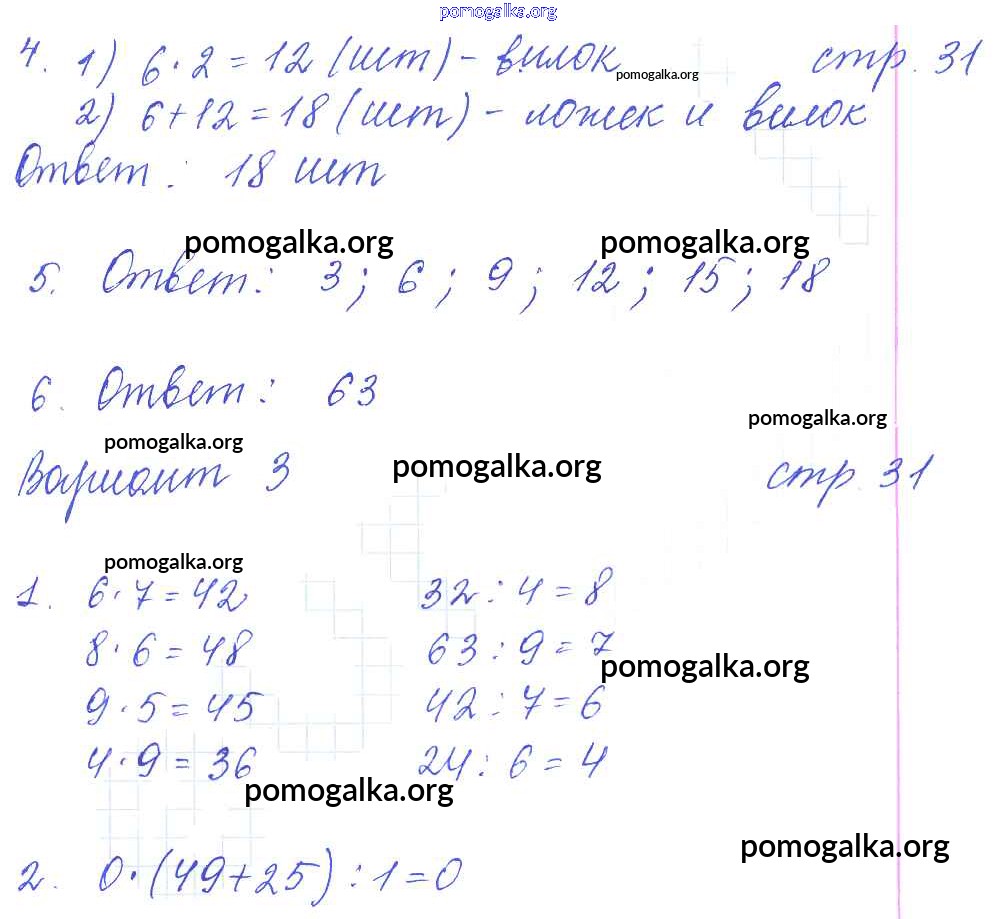 pomogalka.org
4. 1) 6 · 2 = 12 (шт) - вилок стр. 31
pomogalka.org
2) 6 + 12 = 18 (шт) - ложек и вилок
Ответ: 18 шт
pomogalka.org pomogalka.org
5. Ответ: 3; 6; 9; 12; 15; 18
6. Ответ: 63
pomogalka.org
pomogalka.org
Вариант 3 стр. 31
pomogalka.org
pomogalka.org
1. 6 · 7 = 42 32 : 4 = 8
8 · 6 = 48 63 : 9 = 7
pomogalka.org
9 · 5 = 45 42 : 7 = 6
4 · 9 = 36 24 : 6 = 4
pomogalka.org
pomogalka.org
2. 0 · (49 + 25) : 1 = 0